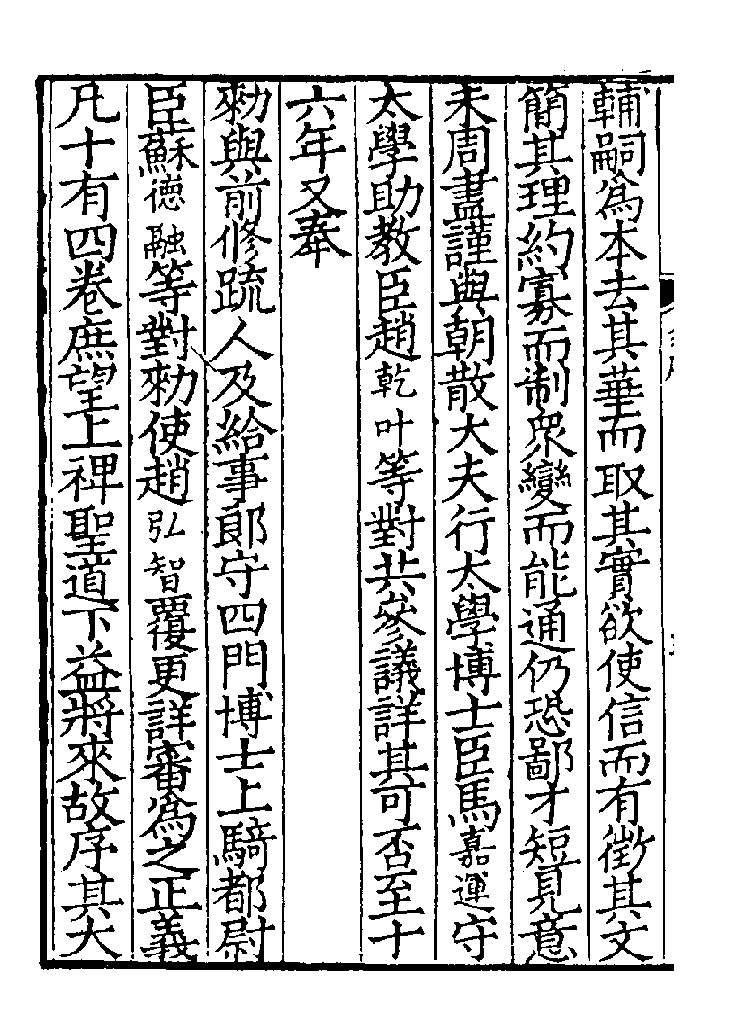 輔嗣爲本去其華而取其實欲使信而有徵其文
簡其理約寡而制衆變而能通仍恐鄙才短見意
未周盡謹與朝散大夫行太學博士臣馬嘉運守
太學助教臣趙乾叶等對共參議詳其可否至十
六年又奉
勑與前修疏人及給事郎守四門博士上騎都尉
臣蘇德融等對勑使趙弘智覆更詳審爲之正義
凡十有四卷庶望上裨聖道下益將來故序其大